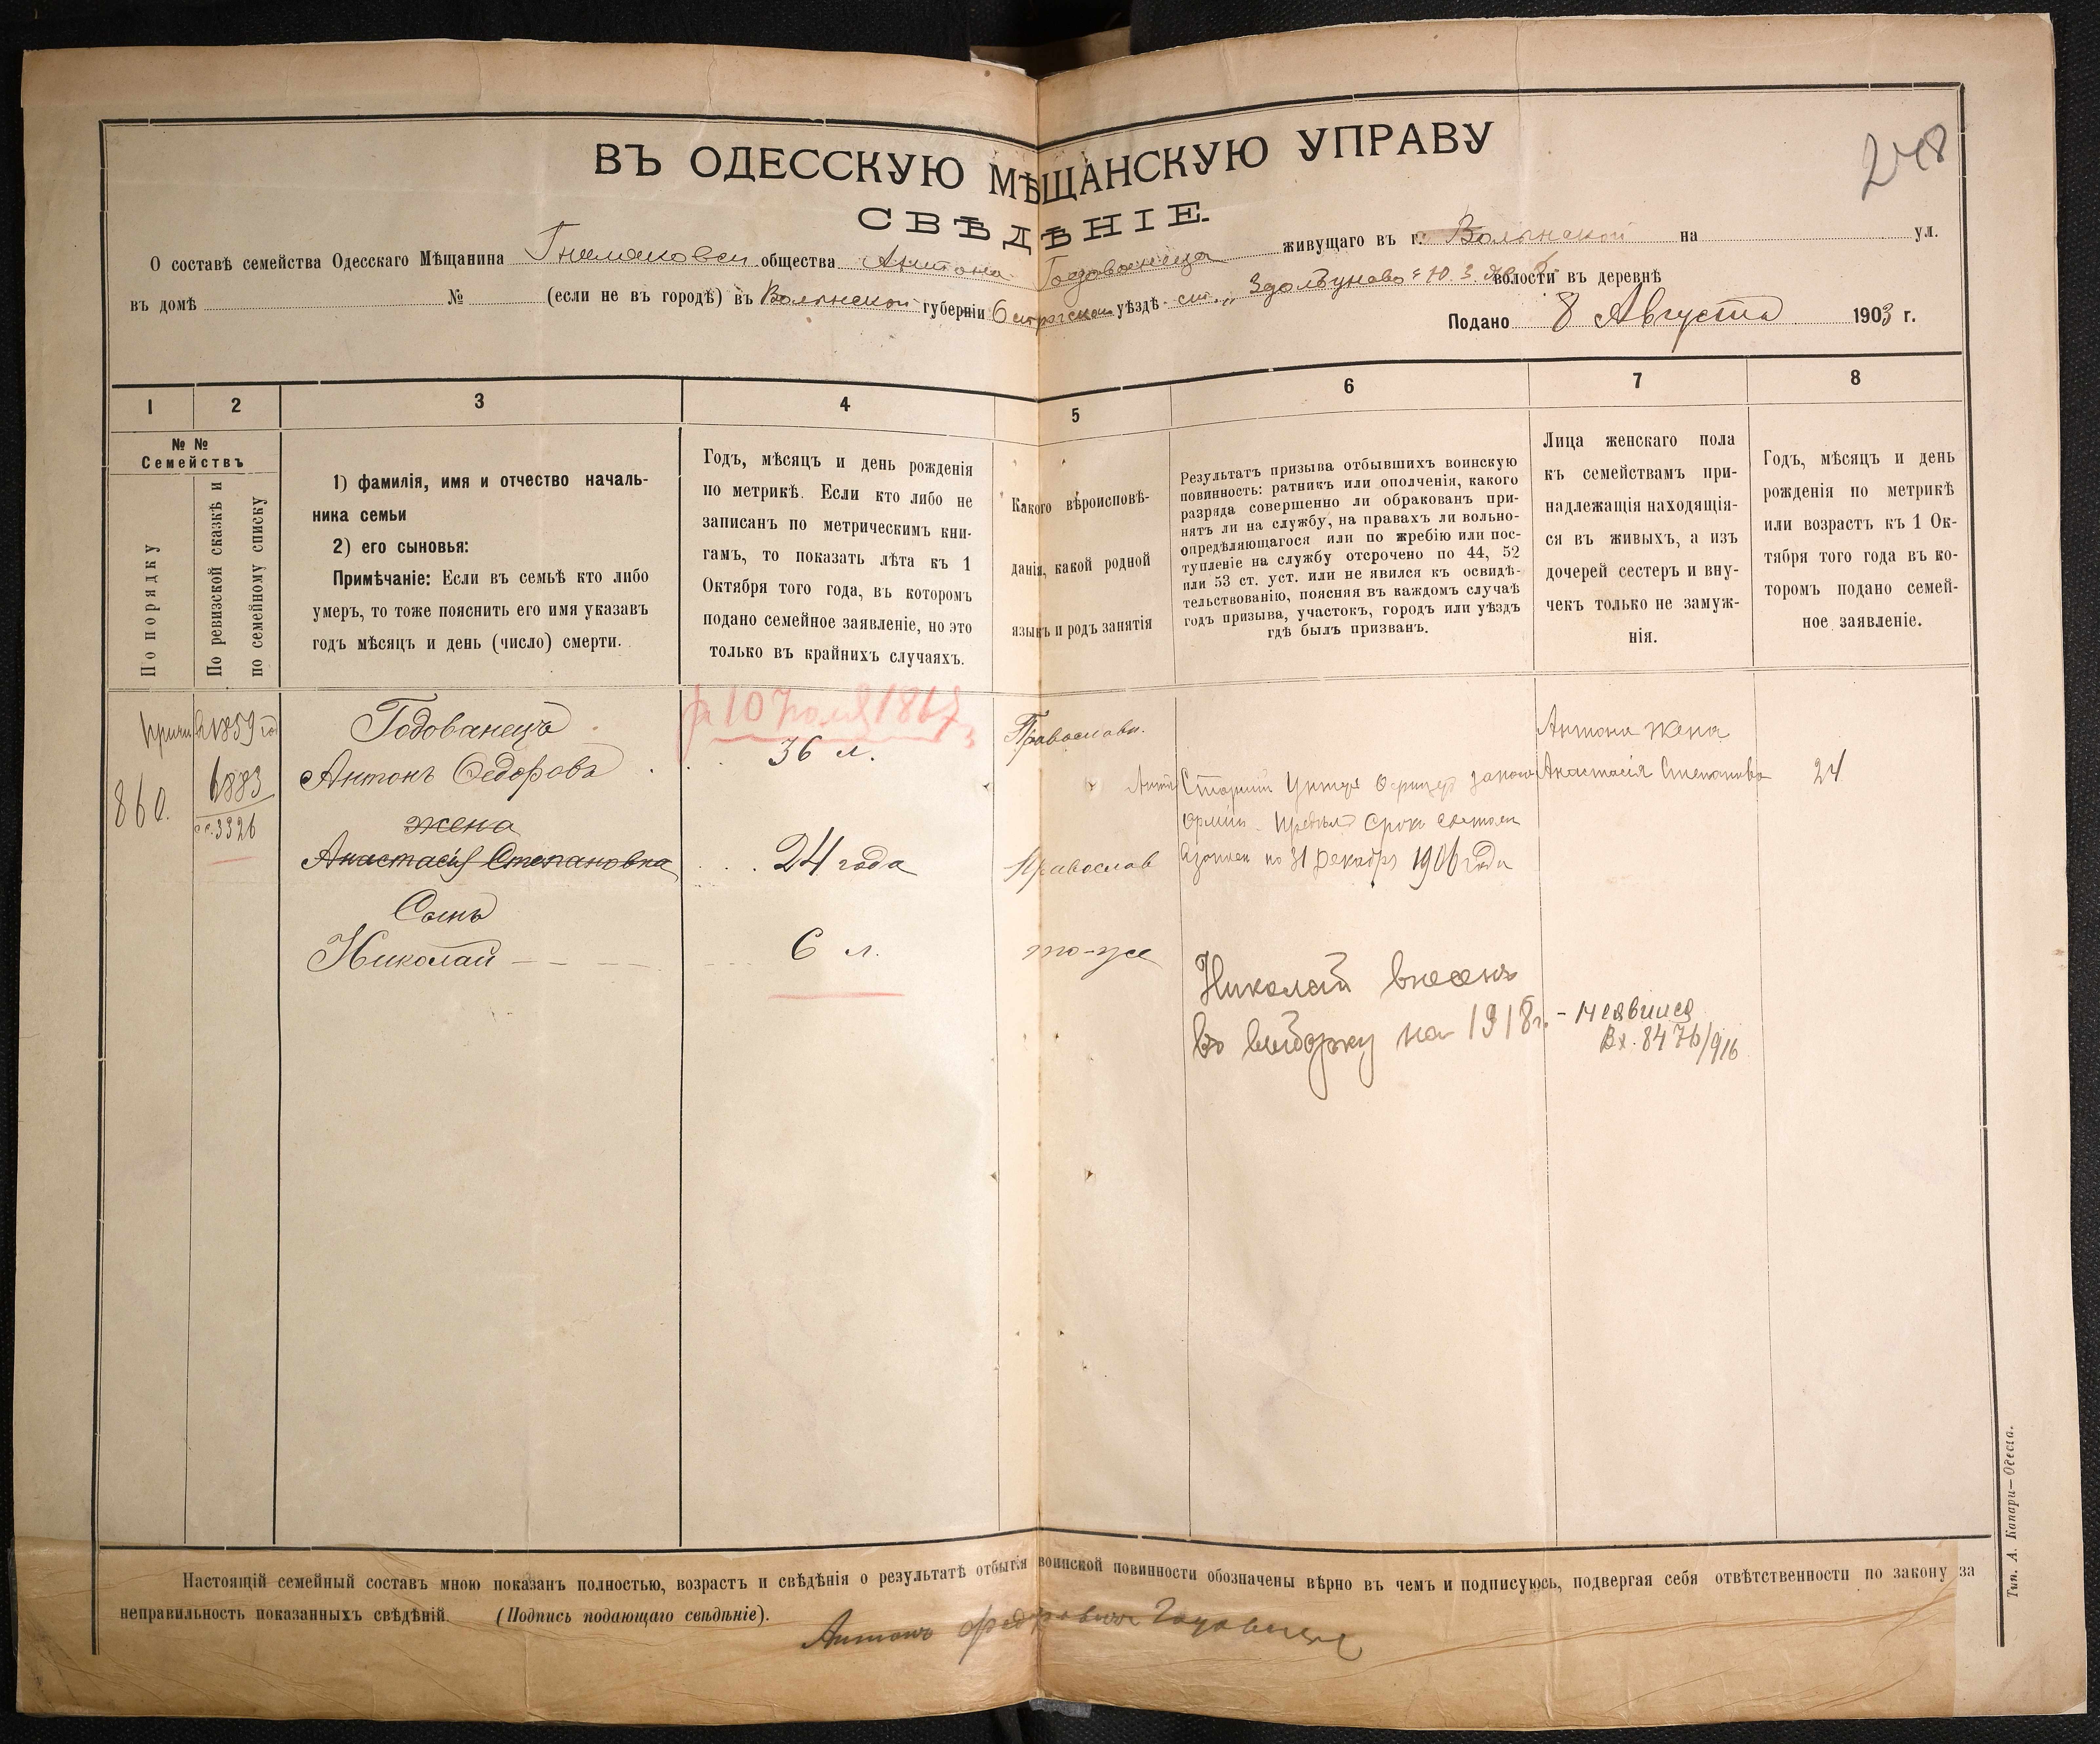 ВЪ ОДЕССКУЮ МѢЩАНСКУЮ УПРАВУ
248
СВѢДѢНІЕ.
О составѣ семейства Одесскаго Мѣщанина общества Антона Годованеца живущаго въ г. Волынской на ул.
въ домѣ № (если не въ городѣ) въ Волынской губерніи Острогском уѣздѣ ст. „Здолбуново" Ю. З. волости въ деревнѣ
Подано 8 Августа 1903 г.
1 2 3 4 5 6 7 8
№ №
Семействъ
По порядку
По ревизской сказкѣ и
по семейному списку
1) фамилія, имя и отчество началь-
ника семьи
2) его сыновья:
Примѣчаніе: Если въ семьѣ кто либо
умеръ, то тоже пояснить его имя указавъ
годъ мѣсяцъ и день (число) смерти.
Годъ, мѣсяцъ и день рожденія
по метрикѣ. Если кто либо не
записанъ по метрическимъ кни-
гамъ, то показать лѣта къ 1
Октября того года, въ которомъ
подано семейное заявленіе, но это
только въ крайнихъ случаяхъ.
Какого вѣроисповѣ-
данія, какой родной
языкъ и родъ занятія
Результатъ призыва отбывшихъ воинскую
повинность: ратникъ или ополченія, какого
разряда совершенно ли обракованъ при-
нятъ ли на службу, на правахъ ли вольно-
опредѣляющагося или по жребію или пос-
тупленіе на службу отсрочено по 44, 52
или 53 ст. уст. или не явился къ освидѣ-
тельствованію, поясняя въ каждомъ случаѣ
годъ призыва, участокъ, городъ или уѣздъ
гдѣ былъ призванъ.
Лица женскаго пола
къ семействамъ при-
надлежащія находящія-
ся въ живыхъ, а изъ
дочерей сестеръ и вну-
чекъ только не замуж-
нія.
Годъ, мѣсяцъ и день
рожденія по метрикѣ
или возрастъ къ 1 Ок-
тября того года въ ко-
торомъ подано семей-
ное заявленіе.
1859 год
860.
6883
3326
Годованецъ
Антонъ Ѳедоровъ
жена
Анастасія Степановна
Сынъ
Николай
р. 10 Іюля 1867
36 л.
24 года
6 л.
Православн.
Православ
то-же
Старший Унтеръ Офицеръ запаса
армии
по 31 декабря 1906 года
Николай внесенъ
въ выборку на 1918 г. - неявился
Вх. 8476/916
Антона жена
Анастасія Степановна
24
Настоящій семейный составъ мною показанъ полностью, возрастъ и свѣдѣнія о результатѣ отбытія воинской повинности обозначены вѣрно въ чемъ и подписуюсь, подвергая себя отвѣтственности по закону за
неправильность показанныхъ свѣдѣній. (Подпись подающаго свѣдѣніе).
Антонъ Федоровичъ Годованец
Тип. А. Капари—Одесса.